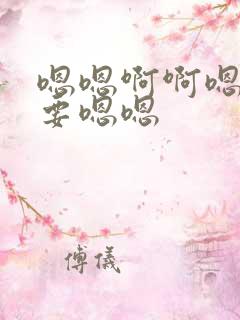 嗯嗯啊啊嗯
要嗯嗯
傅儀